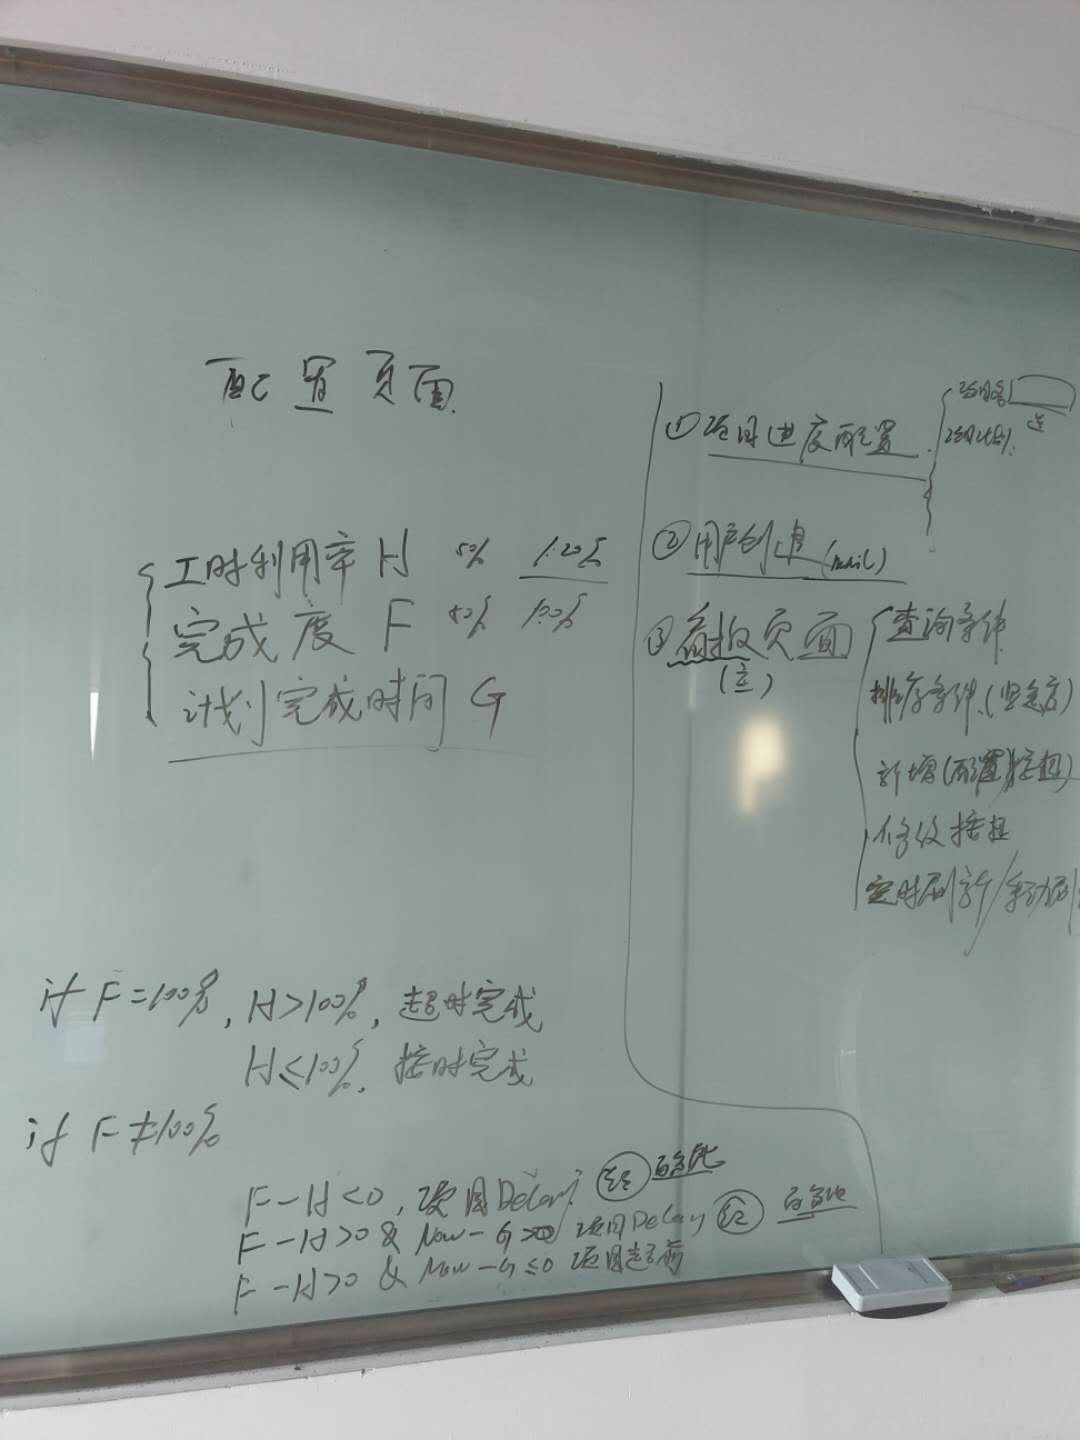 配置页面
工时利用率 H 50% 120%
完成度 F 50% 100%
计划完成时间 G
if F=100%, H>100%, 超时完成
H≤100%, 按时完成
if F≠100%
F-H<0, 项目Delay 红 百分比
F-H>0 & Now-G>0 项目Delay 红 百分比
F-H>0 & Now-G≤0 项目超前
① 项目进度配置
项目名
项目计划
② 用户创建 (mail)
③ 看板页面
(主)
查询条件
排序条件(紧急度)
新增(配置)按钮
修改按钮
定时刷新/手动刷